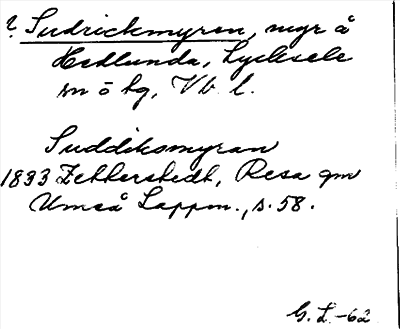 ? Sudrickmyren, myr å
Hedlunda, Lycksele
sn ö tg, Vb. l.
Suddiksmyran
1833 Zetterstedt, Resa gm
Umeå Lappm., s. 58.
G. L. -62